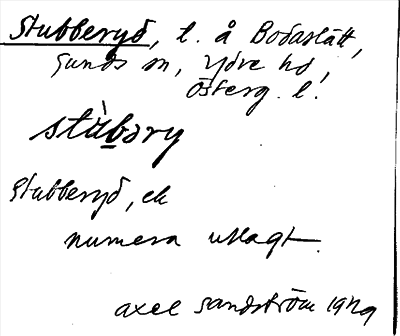 Stubberyd, t. å Bodaslätt,
Sunds sn, Ydre hd,
Österg. l.
stùbəry
Stubberyd, ek
numera utlagt.
Axel Sandström